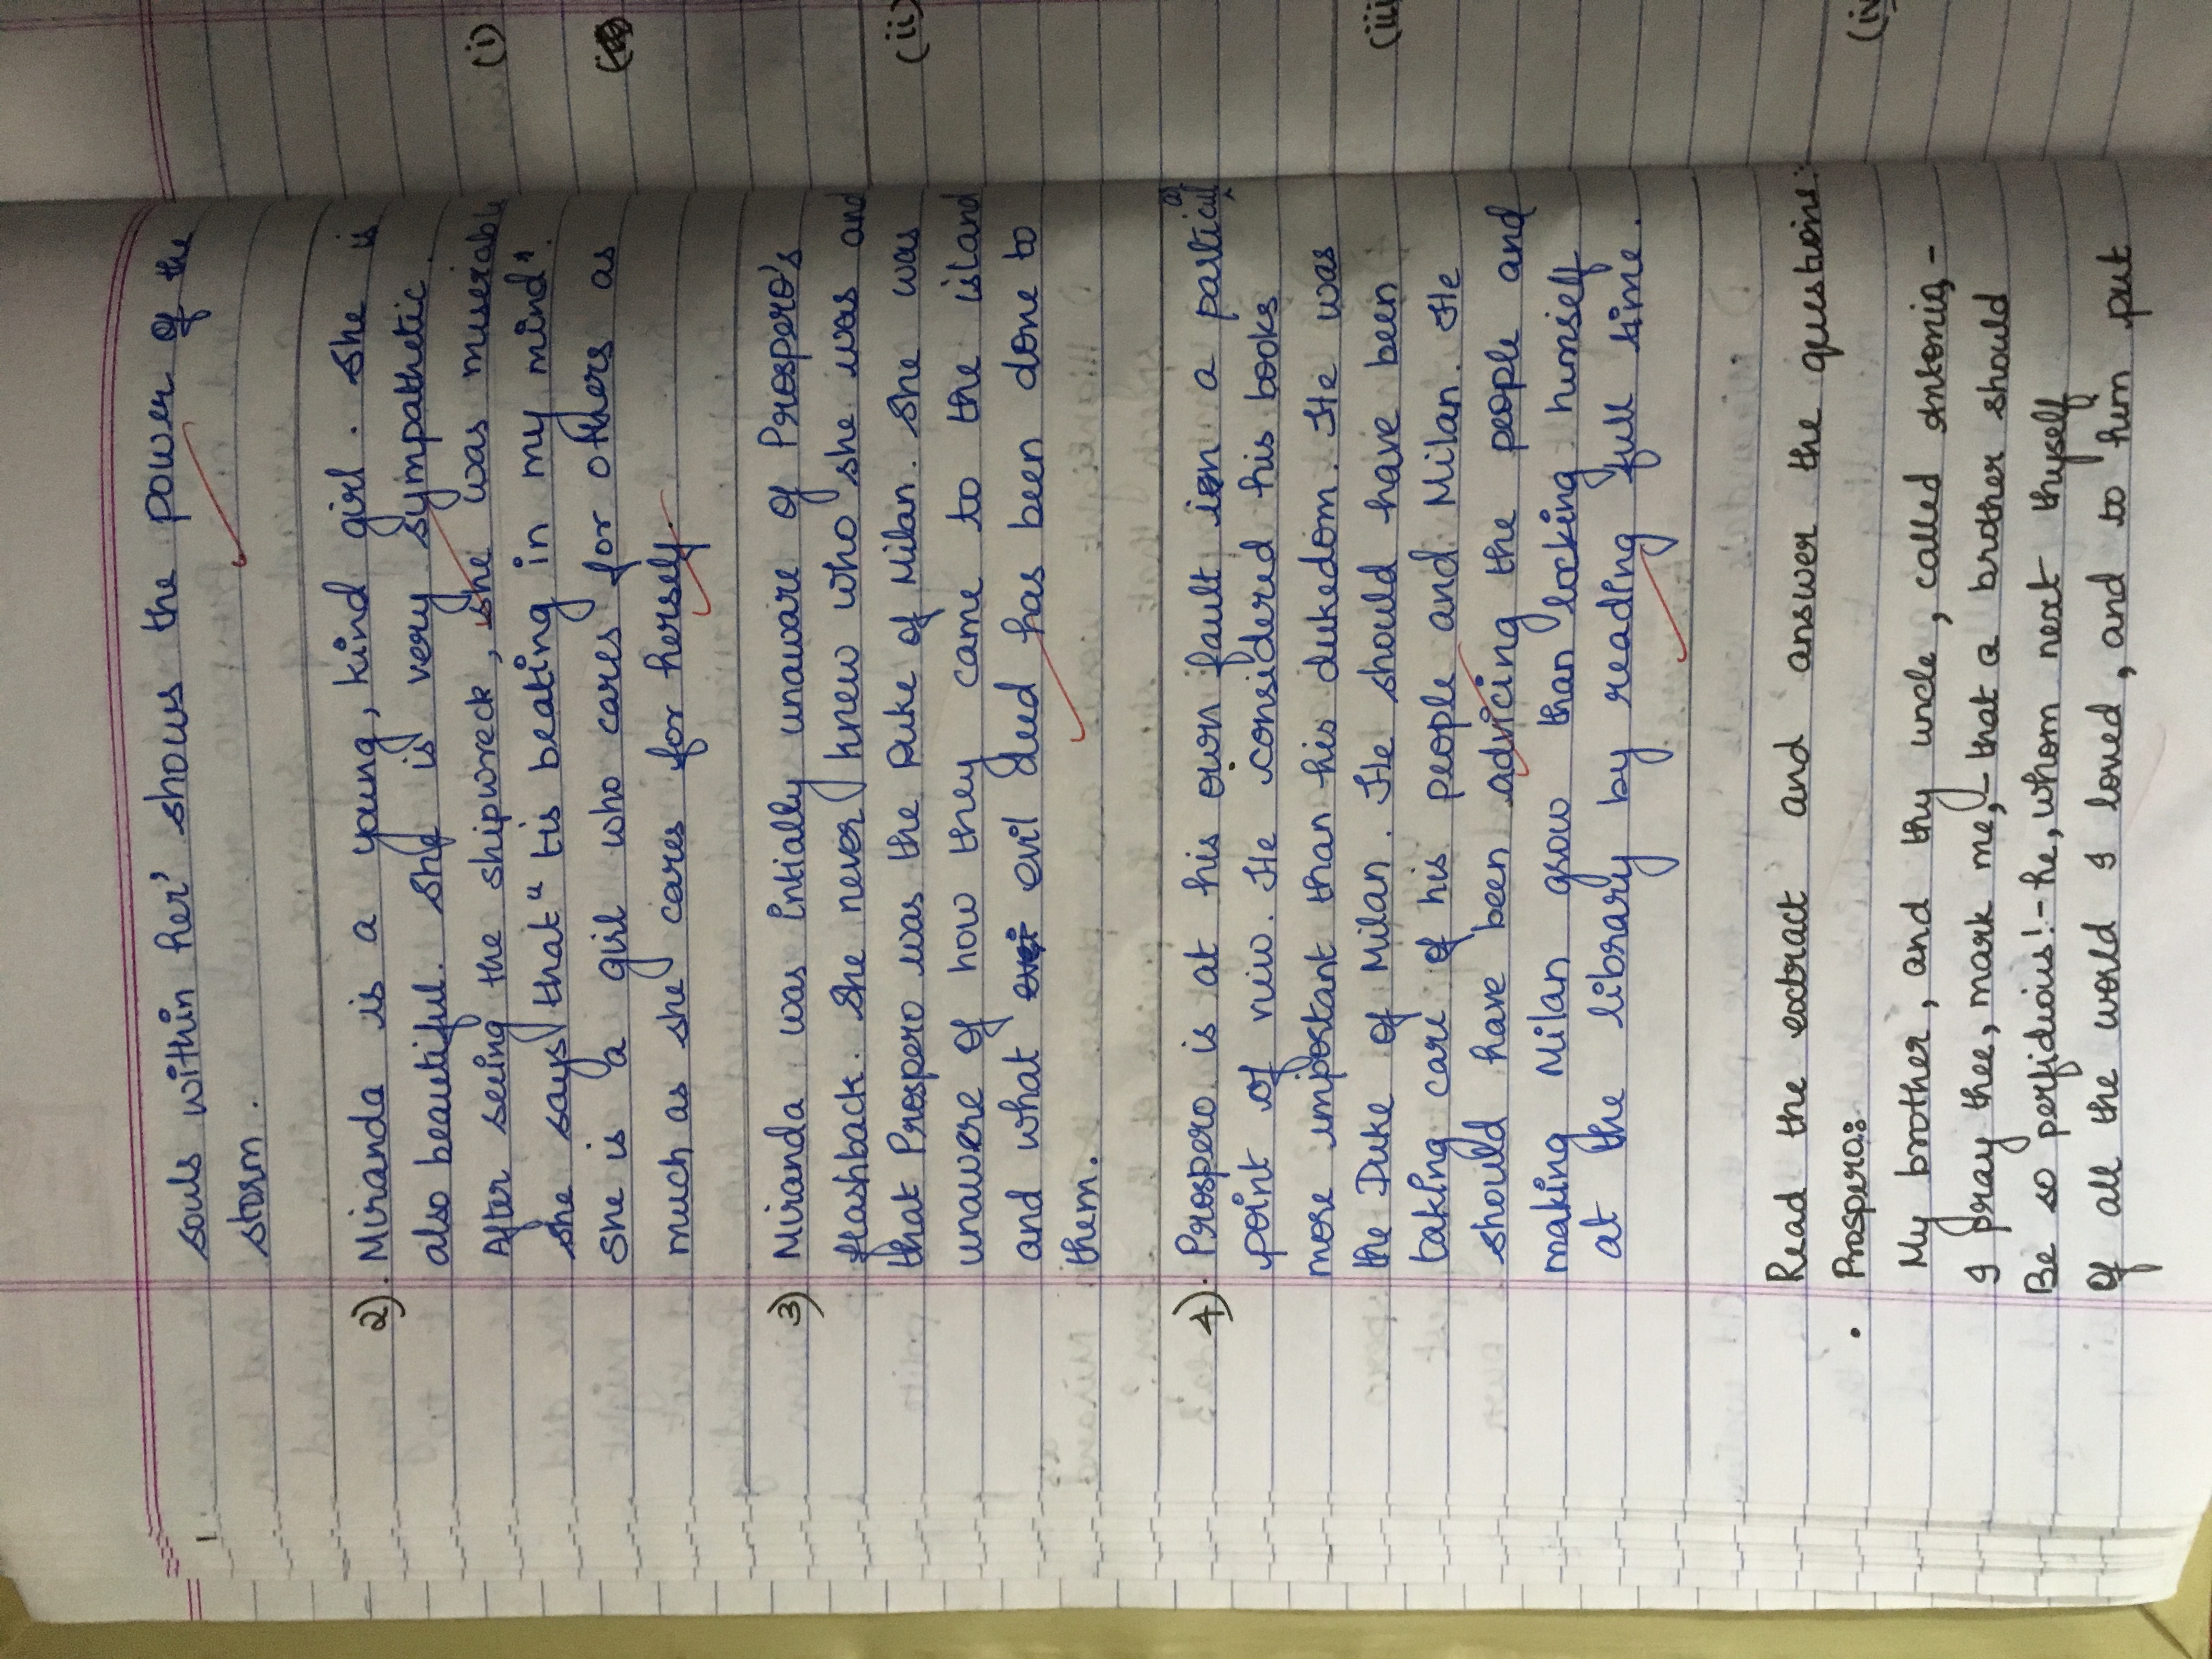 souls within her' shows the power of the
storm.
2). Miranda is a young, kind girl. She is
also beautiful. She is very sympathetic.
After seeing the shipwreck, she was miserable
she says that " tis beating in my mind".
She is a girl who cares for others as
much as she cares for herself.
3) Miranda was intially unaware of Prospero's
flashback. She never knew who she was and
that Prospero was the Duke of Milan. She was
unawere of how they came to the island
and what evil deed has been done to
them.
4). Prospero is at his own fault in a particular
point of view. He considered his books
more important than his dukedom. He was
the Duke of Milan. He should have been
taking care of his people and Milan. He
should have been advicing the people and
making Milan grow than locking himself
at the library by reading full time.
Read the extract and answer the questions:
• Prospero:
My brother, and thy uncle, called Antonio, -
I pray thee, mark me, - that a brother should
Be so perfidious! - he, whom next thyself
Of all the world I loved, and to him put
(i)
(ii)
(iii
(iv